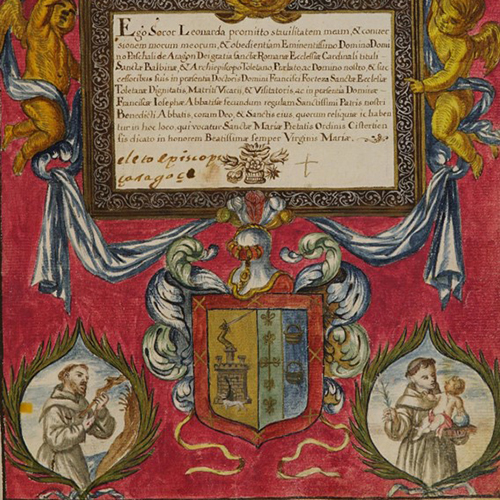 Ego Soror Leouarda promitto stavilitatem meam, & conver
sionem morum meorum, & obedientiam Eminentissimo Domino Domi
no Paschali de Aragon Dei gratia sanctæ Romanæ Ecclesiæ Cardinali tituli
Sanctæ Balbinæ, & Archiepiscopo Toletano Prælato ac Domino nostro & suc
cessoribus suis in presentia Doctoris Domini Francisci Forteza Sanctæ Ecclesiæ
Toletanæ Dignitatis, Matriti Vicarii, & Visitatoris, ac in presentia Dominæ
Franciscæ Iosephæ Abbatissæ secundum regulam Sanctissimi Patris nostri
Benedicti Abbatis, coram Deo, & Sanctis eius, quorum reliquiæ ic haben
tur in hoc loco, qui vocatur Sanctæ Mariæ Pietatis Ordinis Cistertien
sis dicato in honorem Beatissimæ semper Virginis Mariæ.
electo episcopo